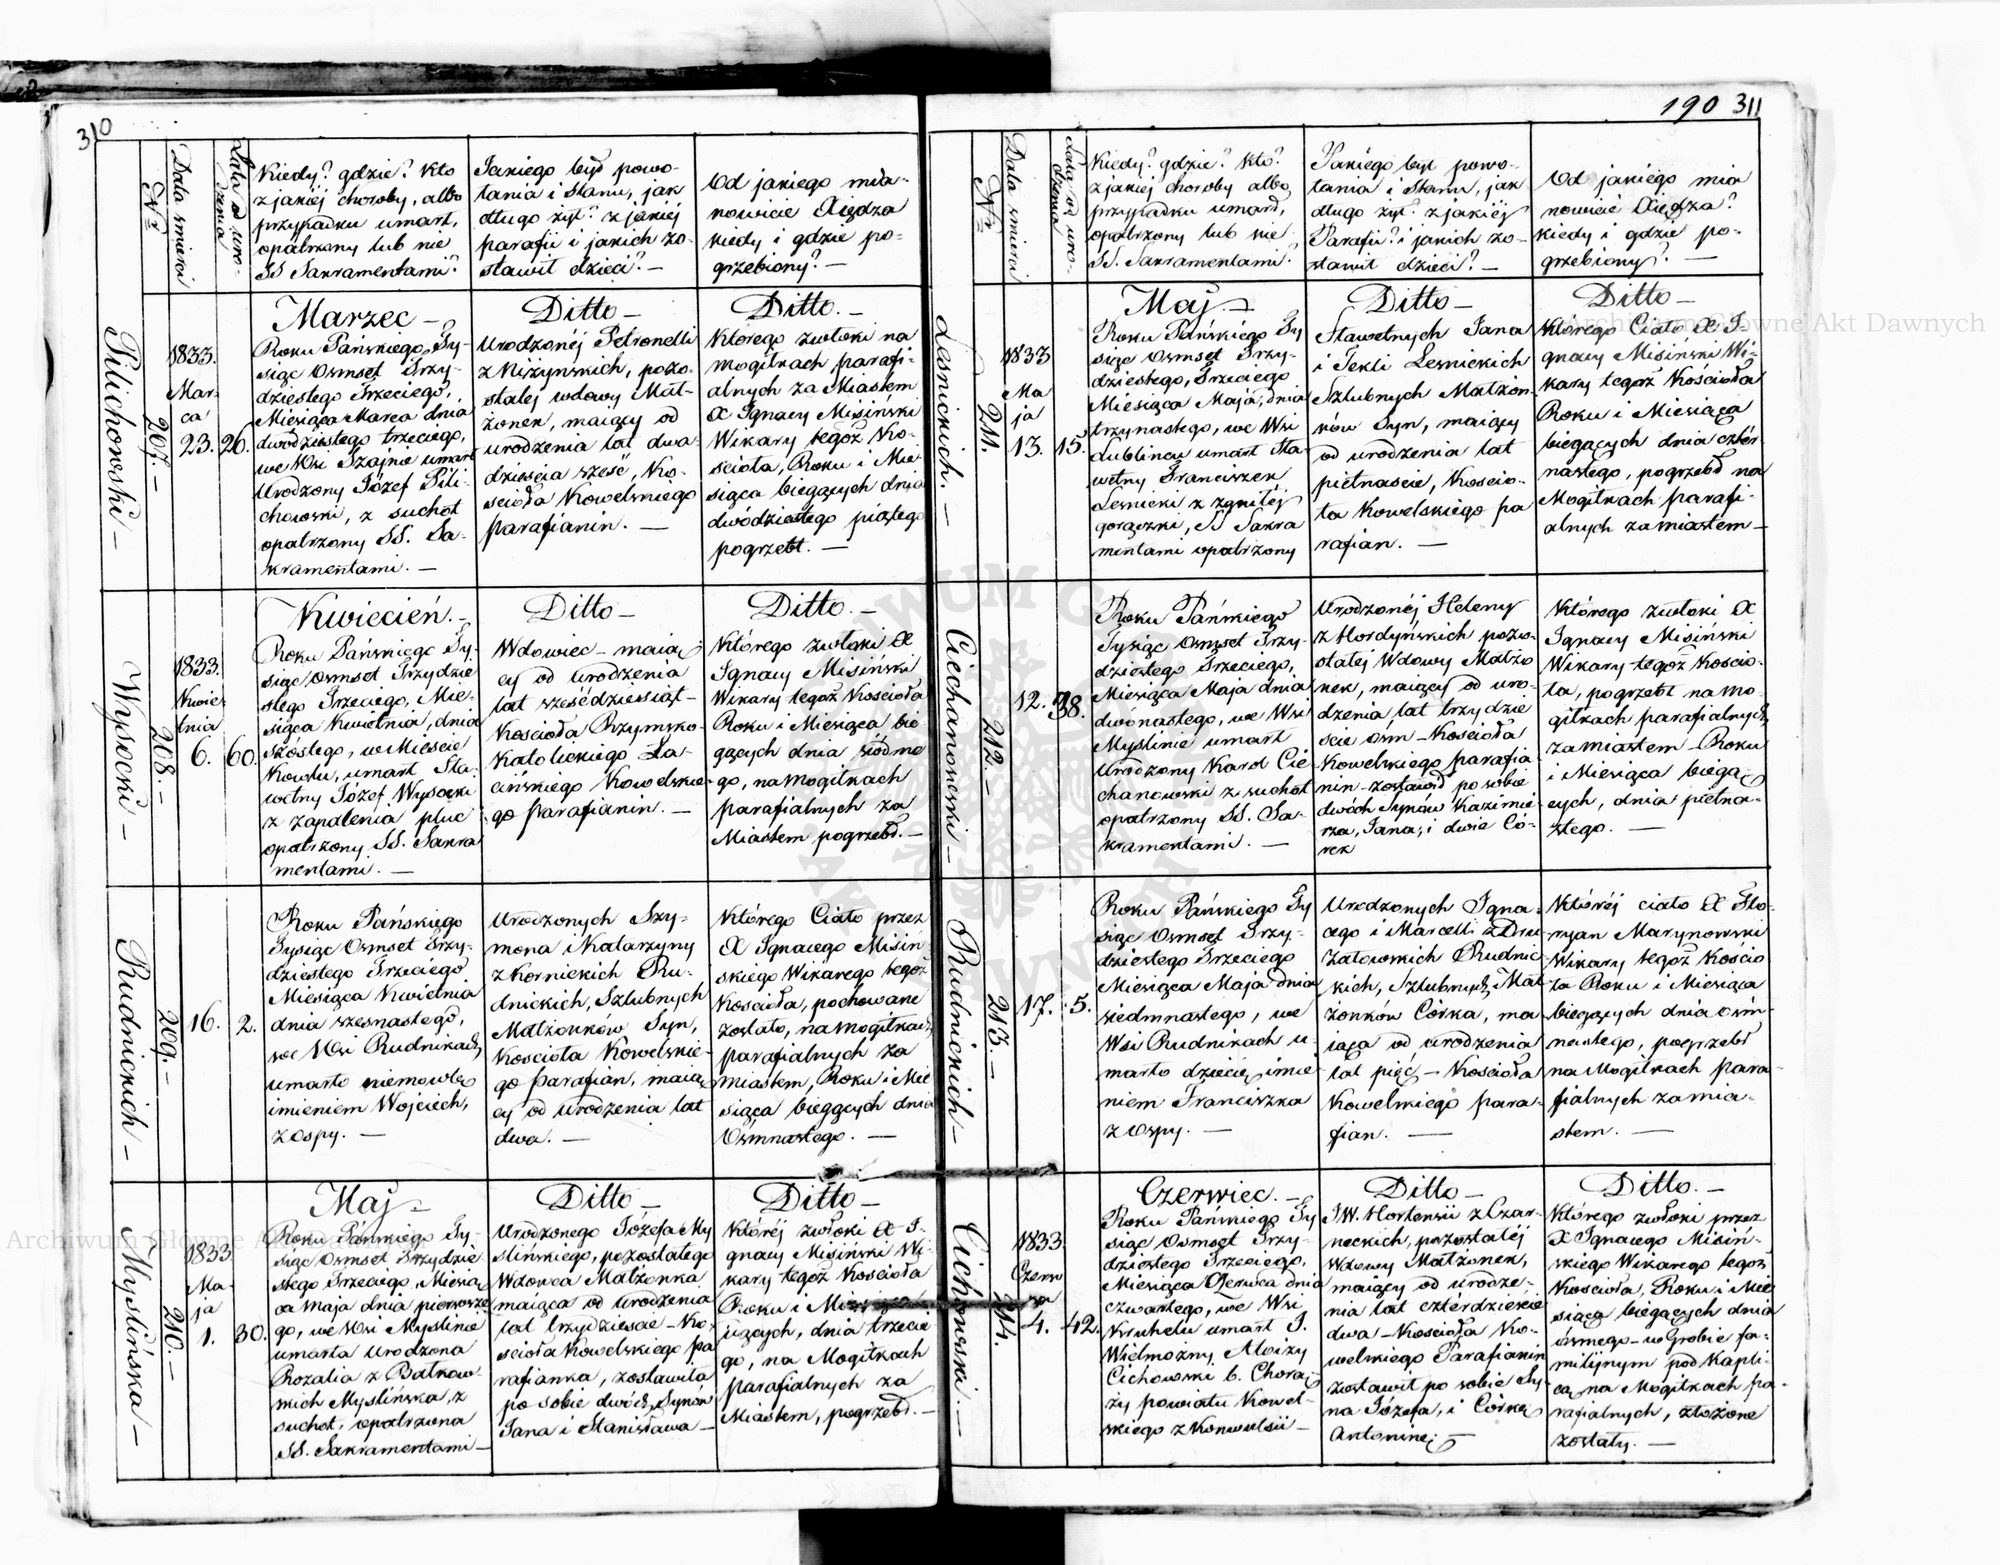 310
Nr
Data śmierci
Lata od uro-
dzenia
Kiedy? gdzie? kto
z jakiéj choroby, albo
przypadku umarł,
opatrzony lub nie
SS Sakramentami?
Jakiego był powo-
łania i stanu, jak
długo żył? z jakiéj
parafii i jakich zo-
stawił dzieci? —
Od jakiego mia-
nowicie Xiędza
kiedy i gdzie po-
grzebiony? —
Pilichowski —
207. —
1833.
Mar-
ca
23.
26.
Marzec —
Roku Pańskiego Ty-
siąc Osmset Trzy-
dziestego Trzeciego,
Miesiąca Marca dnia
dwódziestego trzeciego,
we Wsi Szajnie umarł
Urodzony Józef Pili-
chowski, z suchot
opatrzony SS. Sa-
kramentami. —
Ditto —
Urodzonéj Petronelli
z Niżynskich, pozo-
stałej wdowy Mał-
żonek, maiący od
urodzenia lat dwa-
dzieścia sześć, Ko-
ścioła Kowelskiego
parafianin. —
Ditto. —
Którego zwłoki na
mogiłkach parafi-
alnych za Miastem
X Ignacy Misiński
Wikary tegoż Ko-
ścioła, Roku i Mie-
siąca bieżących dnia
dwódziestego piątego
pogrzebł. —
Wysocki —
208. —
1833.
Kwie-
tnia
6.
60.
Kwiecień. —
Roku Pańskiego Ty-
siąc Osmset Trzydzie
stego Trzeciego, Mie-
siąca Kwietnia, dnia
szóstego, w Mieście
Kowlu, umarł Sła-
wetny Józef Wysocki
z zapalenia płuc
opatrzony SS. Sakra
mentami. —
Ditto —
Wdowiec — maią-
cy od urodzenia
lat sześćdziesiąt —
Kościoła Rzymsko-
Katolickiego Ła-
cińskiego Kowelskie-
go parafianin. —
Ditto. —
Którego zwłoki X
Ignacy Misiński
Wikary tegoż Kościoła
Roku i Miesiąca bie-
żących dnia siódme
go, na mogiłkach
parafialnych za
Miastem pogrzebł. —
Rudnickich —
209. —
16.
2.
Roku Pańskiego
Tysiąc Osmset Trzy-
dziestego Trzeciego
Miesiąca Kwietnia
dnia szesnastego,
we Wsi Rudnikach,
umarło niemowlę
imieniem Wojciech,
z ospy. —
Urodzonych Szy-
mona i Katarzyny
z Kornickich Ru-
dnickich, Szlubnych
Małżonków Syn,
Kościoła Kowelskie-
go parafian, maią-
cy od urodzenia lat
dwa. —
Którego Ciało przez
X Ignacego Misiń-
skiego Wikarego tegoż
Kościoła, pochowane
zostało, na mogiłkach
parafialnych za
miastem, Roku i Mie
siąca bieżących dnia
Ośmnastego. —
Myslińska —
210. —
1833
Ma-
ja
1.
30.
Maj —
Roku Pańskiego Ty-
siąc Osmset Trzydzie
stego Trzeciego, Miesią
ca Maja dnia pierwsze
go, we Wsi Myslinie
umarła Urodzona
Rozalia z Bałkow-
skich Myslińska, z
suchot, opatrzona
SS. Sakramentami —
Ditto —
Urodzonego Józefa My
slińskiego, pozostałego
Wdowca Małżonka
maiąca od urodzenia
lat trzydzieście — Ko-
ścioła Kowelskiego pa
rafianka, zostawiła
po sobie dwóch Synów
Jana i Stanisława —
Ditto —
Któréj zwłoki X I-
gnacy Misinski Wi-
kary tegoż Kościoła
Roku i
bieżących, dnia trzecie
go, na Mogiłkach
parafialnych za
Miastem, pogrzebł. —
190 311
Nr
Data śmierci
Lata od uro-
dzenia
Kiedy? gdzie? kto?
z jakiéj choroby albo,
przypadku umarł,
opatrzony lub nie
SS. Sakramentami?
Jakiego był powo-
łania i stanu, jak
długo żył? z jakiéj
Parafii? i jakich zo-
stawił dzieci? —
Od jakiego mia
nowicie Xiędza?
kiedy i gdzie po-
grzebiony? —
Lasnickich. —
211.
1833
Ma
ja
13.
15.
Maj —
Roku Pańskiego Ty
siąc Osmset Trzy-
dziestego, Trzeciego
Miesiąca Maja, dnia
trzynastego, we Wsi
Lublincu umarł Sła-
wetny Franciszek
Lesnicki z zgniłéj
gorączki, SS Sakra
mentami opatrzony
Ditto —
Sławetnych Jana
i Tekli Lesnickich
Szlubnych Małżon-
ków Syn, maiący
od urodzenia lat
piętnaście, Kościo-
ła Kowelskiego pa
rafian. —
Ditto —
Którego Ciało X I-
gnacy Misiński Wi-
kary tegoż Kościoła
Roku i Miesiąca
bieżących dnia cztér-
nastego, pogrzebł na
Mogiłkach parafi-
alnych za miastem —
Ciechanowski —
212. —
12.
38.
Roku Pańskiego
Tysiąc Osmset Trzy-
dziestego Trzeciego,
Miesiąca Maja dnia
dwónastego, we Wsi
Myslinie umarł
Urodzony Karol Cie
chanowski z suchot
opatrzony SS. Sa-
kramentami. —
Urodzonéj Heleny
z Hordyńskich pozo-
stałej Wdowy Małżo
nek, maiący od uro-
dzenia lat trzydzie
ście osm — Kościoła
Kowelskiego parafia
nin — zostawił po sobie
dwóch Synów Kazimie
rza, Jana, i dwie Có-
rek
Którego zwłoki X
Ignacy Misiński
Wikary tegoż Kościo-
ła, pogrzebł na Mo-
giłkach parafialnych,
za miastem — Roku
i Miesiąca bieżą-
cych, dnia piętna-
stego. —
Rudnickich —
213. —
17.
5.
Roku Pańskiego Ty
siąc Osmset Trzy-
dziestego Trzeciego
Miesiąca Maja dnia
siedmnastego, we
Wsi Rudnikach u-
marło dziecię imie-
niem Franciszka
z Ospy. —
Urodzonych Igna-
cego i Marcelli z Dru
załowskich Rudnic-
kich, Szlubnych Mał
żonków Córka, ma
iąca od urodzenia
lat pięć — Kościoła
Kowelskiego para-
fian. —
Któréj ciało X Flo-
ryan Marynowski
Wikary tegoż Kościo
ła Roku i Miesiąca
bieżących dnia ośm-
nastego, pogrzebł
na Mogiłkach para-
fialnych za mia-
stem. —
Cichowski. —
214.
1833
Czerw
ca
4.
42.
Czerwiec. —
Roku Pańskiego Ty
siąc Osmset Trzy-
dziestego Trzeciego,
Miesiąca Czerwca dnia
czwartego, we Wsi
Kruhelu umarł J.
Wielmożny Aloizy
Cichowski b. Chorą-
ży powiatu Kowel-
skiego z Konwulsii —
Ditto —
JW. Hortensii z Czar-
neckich, pozostałéj
Wdowy Małżonek,
maiący od urodze-
nia lat cztérdzieście
dwa — Kościoła Ko-
welskiego Parafianin
zostawił po sobie Sy-
na Józefa, i Córkę
Antoninę —
Ditto. —
Którego zwłoki przez
X Ignacego Misiń-
skiego Wikarego tegoż
Kościoła, Roku i Mie
siąca bieżących dnia
ósmego — w Grobie fa-
milijnym pod Kapli-
cą na Mogiłkach pa-
rafialnych, złożone
zostały. —
Archiwum Główne Akt Dawnych